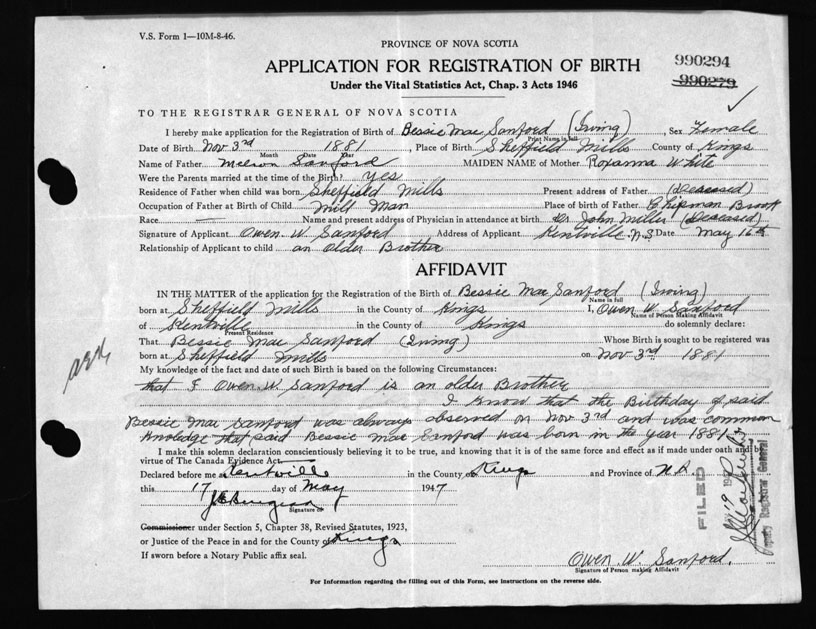 V.S. Form 1—10M-8-46.
PROVINCE OF NOVA SCOTIA
APPLICATION FOR REGISTRATION OF BIRTH
990294
990279
Under the Vital Statistics Act, Chap. 3 Acts 1946
TO THE REGISTRAR GENERAL OF NOVA SCOTIA
I hereby make application for the Registration of Birth of Bessie Mae Sanford (Irving) Sex Female
Print Name in full
Date of Birth Nov 3rd 1881, Place of Birth Sheffield Mills County of Kings
Month Date Year
Name of Father Sanford MAIDEN NAME of Mother Roxanna White
Were the Parents married at time of the Birth? yes
Residence of Father when child was born Sheffield Mills Present address of Father (Deceased)
Occupation of Father at Birth of Child Mill Man Place of birth of Father Chipman Brook
Race — Name and present address of Physician in attendance at birth Dr John Miller (Deceased)
Signature of Applicant Owen W Sanford Address of Applicant Kentville N.S Date May 16th
Relationship of Applicant to child an Older Brother
AFFIDAVIT
IN THE MATTER of the application for the Registration of the Birth of Bessie Mae Sanford (Irving)
Name in full
born at Sheffield Mills in the County of Kings I, Owen W Sanford
Name of Person Making Affidavit
of Kentville in the County of Kings do solemnly declare:
Present Residence
That Bessie Mae Sanford (Irving) Whose Birth is sought to be registered was
born at Sheffield Mills on Nov 3rd 1881
My knowledge of the fact and date of such Birth is based on the following Circumstances:
that I Owen W. Sanford is an older Brother
I know that the Birthday of said
Bessie Mae Sanford was always observed on Nov 3rd and was common
knoledge that said Bessie Mae Sanford was born in the year 1881
I make this solemn declaration conscientiously believing it to be true, and knowing that it is of the same force and effect as if made under oath and by
virtue of The Canada Evidence Act
Declared before me at Kentville in the County Kings and Province of N.S.
this 17 day of May 1947
Signature of
Commissioner under Section 5, Chapter 38, Revised Statutes, 1923,
or Justice of the Peace in and for the County of Kings
If sworn before a Notary Public affix seal.
FILED
Deputy Registrar General
Owen W. Sanford.
Signature of Person making Affidavit
For Information regarding the filling out of this Form, see instructions on the reverse side.